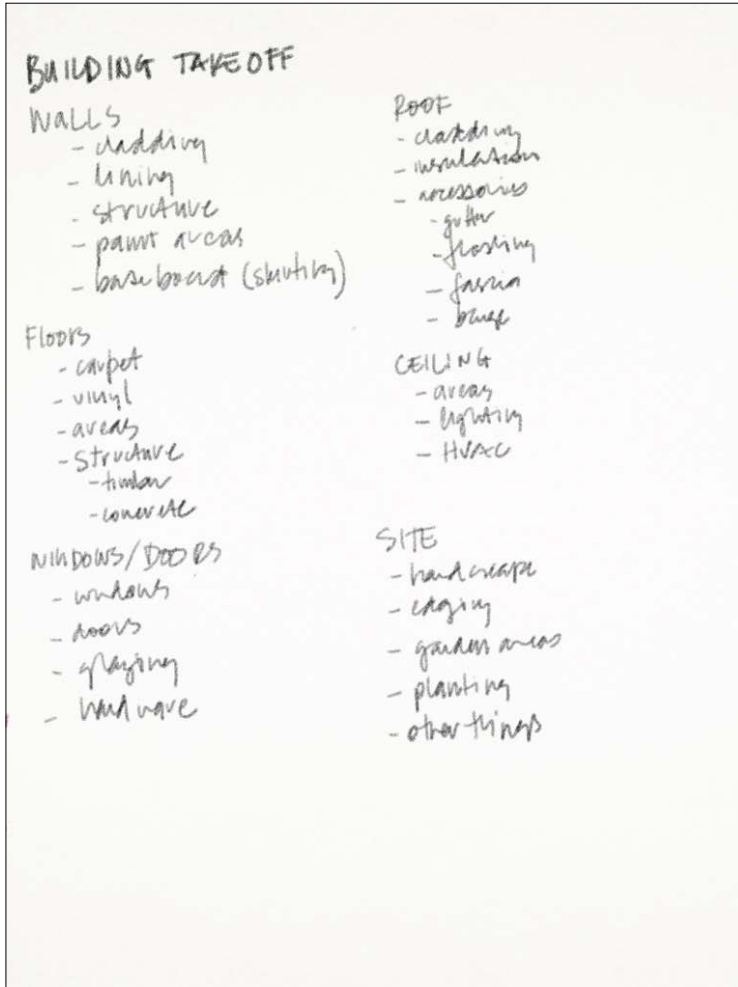 BUILDING TAKEOFF
WALLS
- cladding
- lining
- structure
- paint areas
- baseboard (skirting)
Floors
- carpet
- vinyl
- areas
- structure
- timber
- concrete
WINDOWS/DOORS
- windows
- doors
- glazing
- hardware
ROOF
- cladding
- insulation
- accessories
- gutter
- flashing
- fascia
- barge
CEILING
- areas
- lighting
- HVAC
SITE
- hardscape
- edging
- garden areas
- planting
- other things